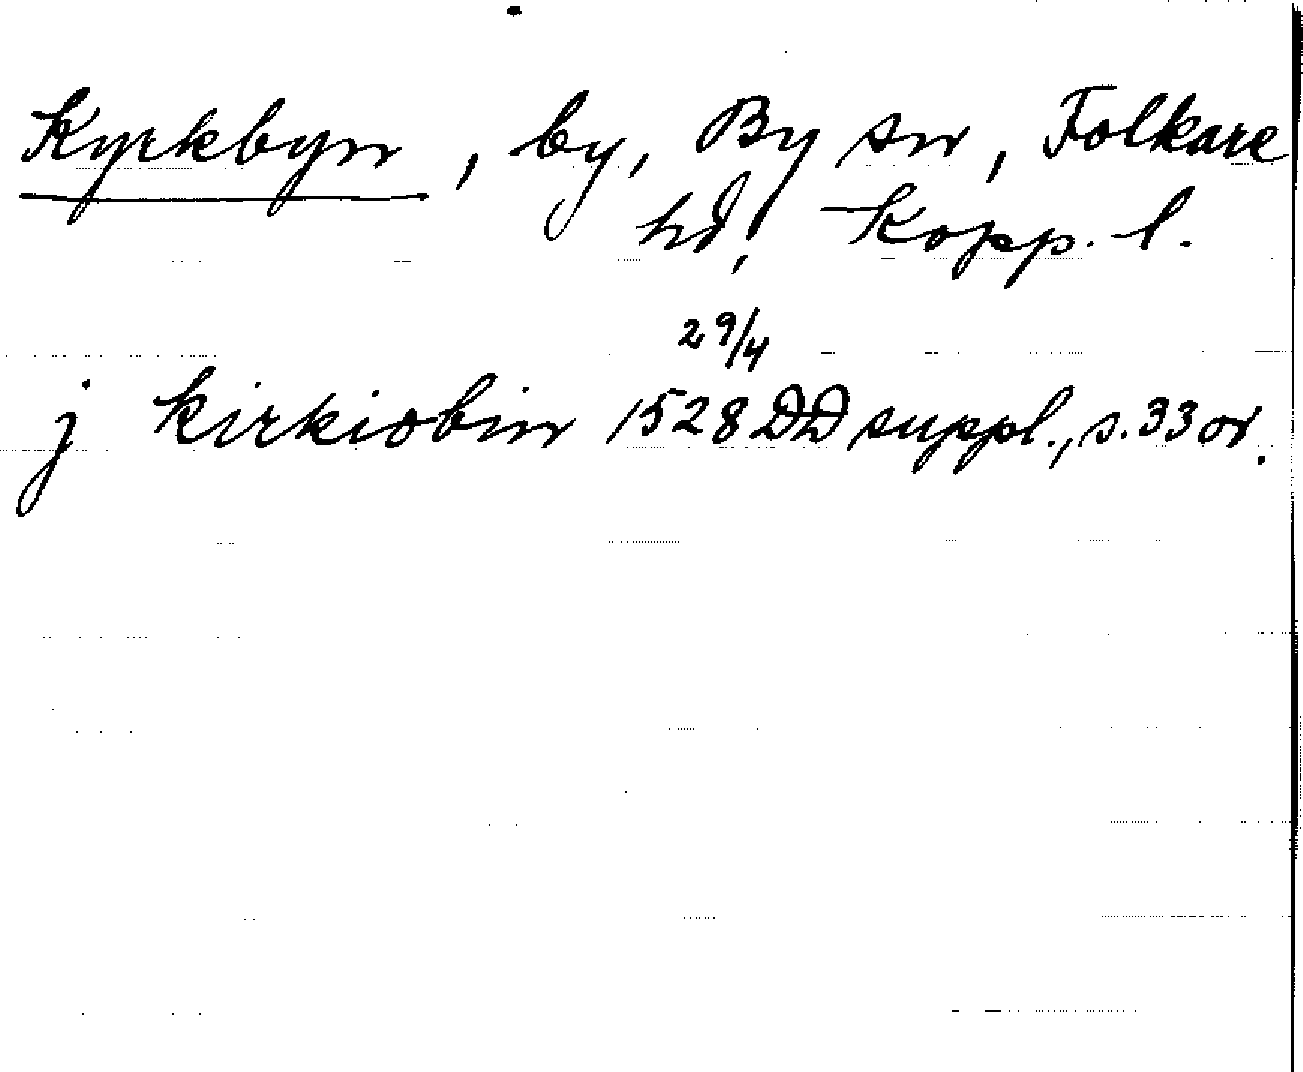 Kyrkbyn, by, By sn, Folkare
hd, Kopp. l.
29/4
j kirkiobin 1528 DD suppl., s. 33 or.